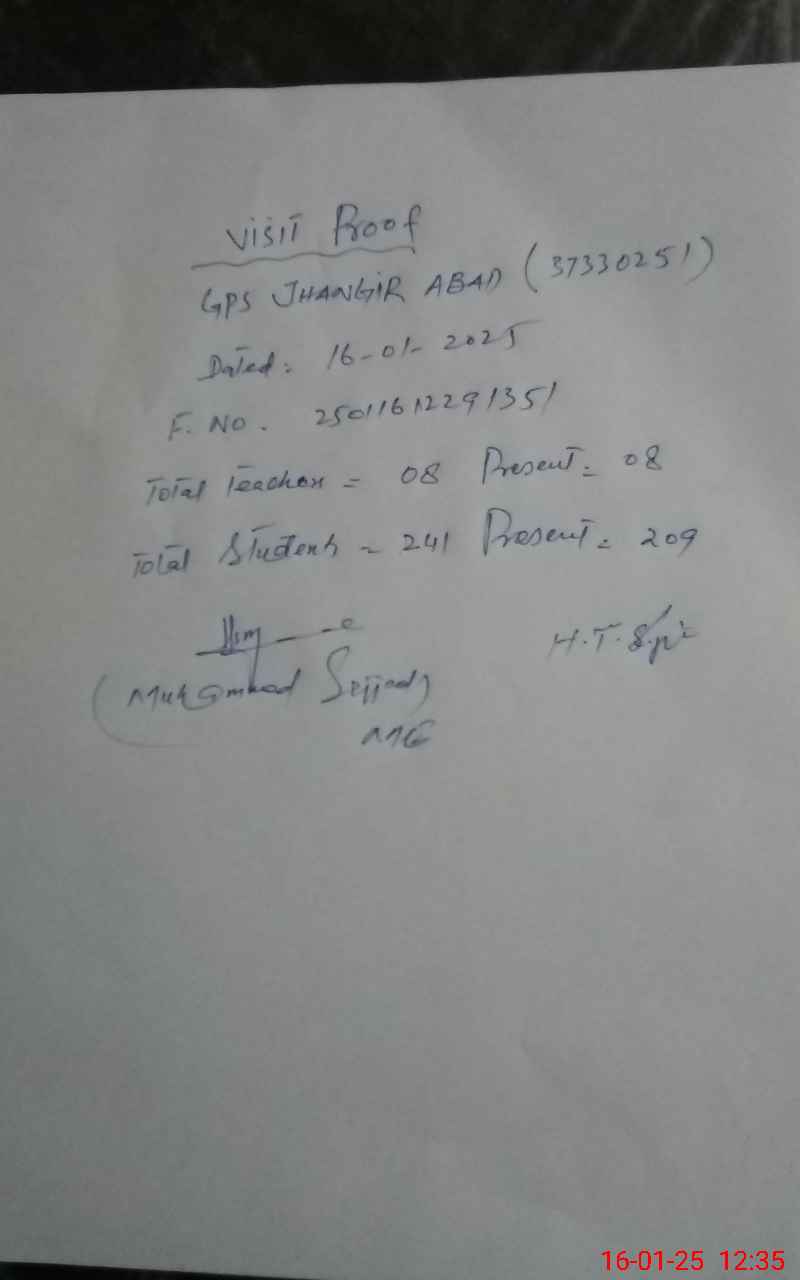 Visit Proof
GPS JHANGIR ABAD (37330251)
Dated: 16-01-2025
F. No. 25011612291351
Total Teacher = 08 Present = 08
Total Students = 241 Present = 209
H.T.
(Muhammad Sajjad)
16-01-25 12:35